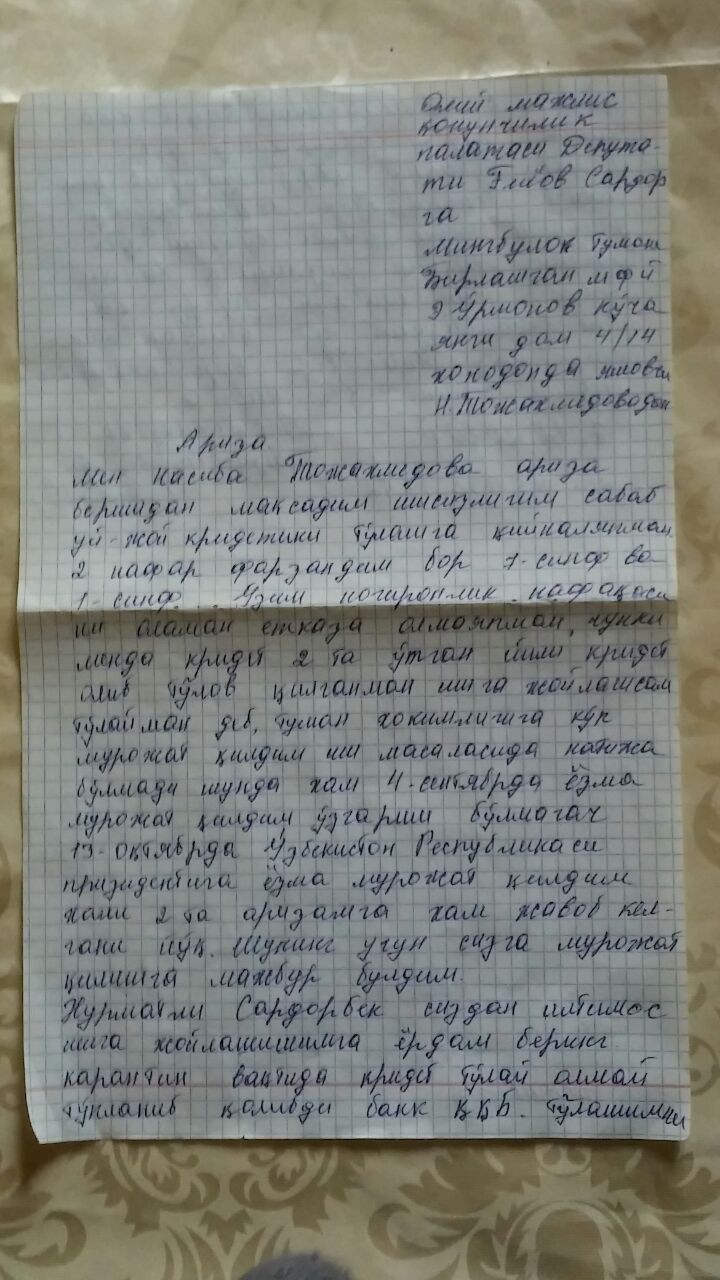 Олий мажлис
қонунчилик
палатаси Депута-
ти Сардор
га
Мингбулок тумани
Бирлашган мфй
Э Ўрмонов кўча
янги дом 4/14
хонодонда яшовчи
Н.Тожахмедовадан
Ариза
Мен Насиба Тожахмедова ариза
беришдан мақсадим ишсизлигим сабаб
уй-жой кридетини тўлашга қийналяпман
2 нафар фарзандим бор 7-синф ва
1-синф. Ўзим ногиронлик нафақаси
ни оламан етказа олмаяпман, чунки
менда кридет 2 та ўтган йили кридет
олиб тўлов қилганман ишга жойлашсам
тўлайман деб, туман хокимлигига кўп
мурожат қилдим иш масаласида натижа
бўлмади шунда хам 4-сентябрда ёзма
мурожат қилдим ўзгариш бўлмагач
13-октябрда Ўзбекистон Республикаси
призидентига ёзма мурожат қилдим
хали 2 та аризамга хам жавоб кел-
гани йўқ. Шунинг учун сизга мурожат
қилишга мажбур булдим.
Хурматли Сардорбек сиздан илтимос
ишга жойлашишимга ёрдам беринг.
карантин вақтида кридет тўлай олмай
тўпланиб қолибди банк ҚҚБ. тўлашимни